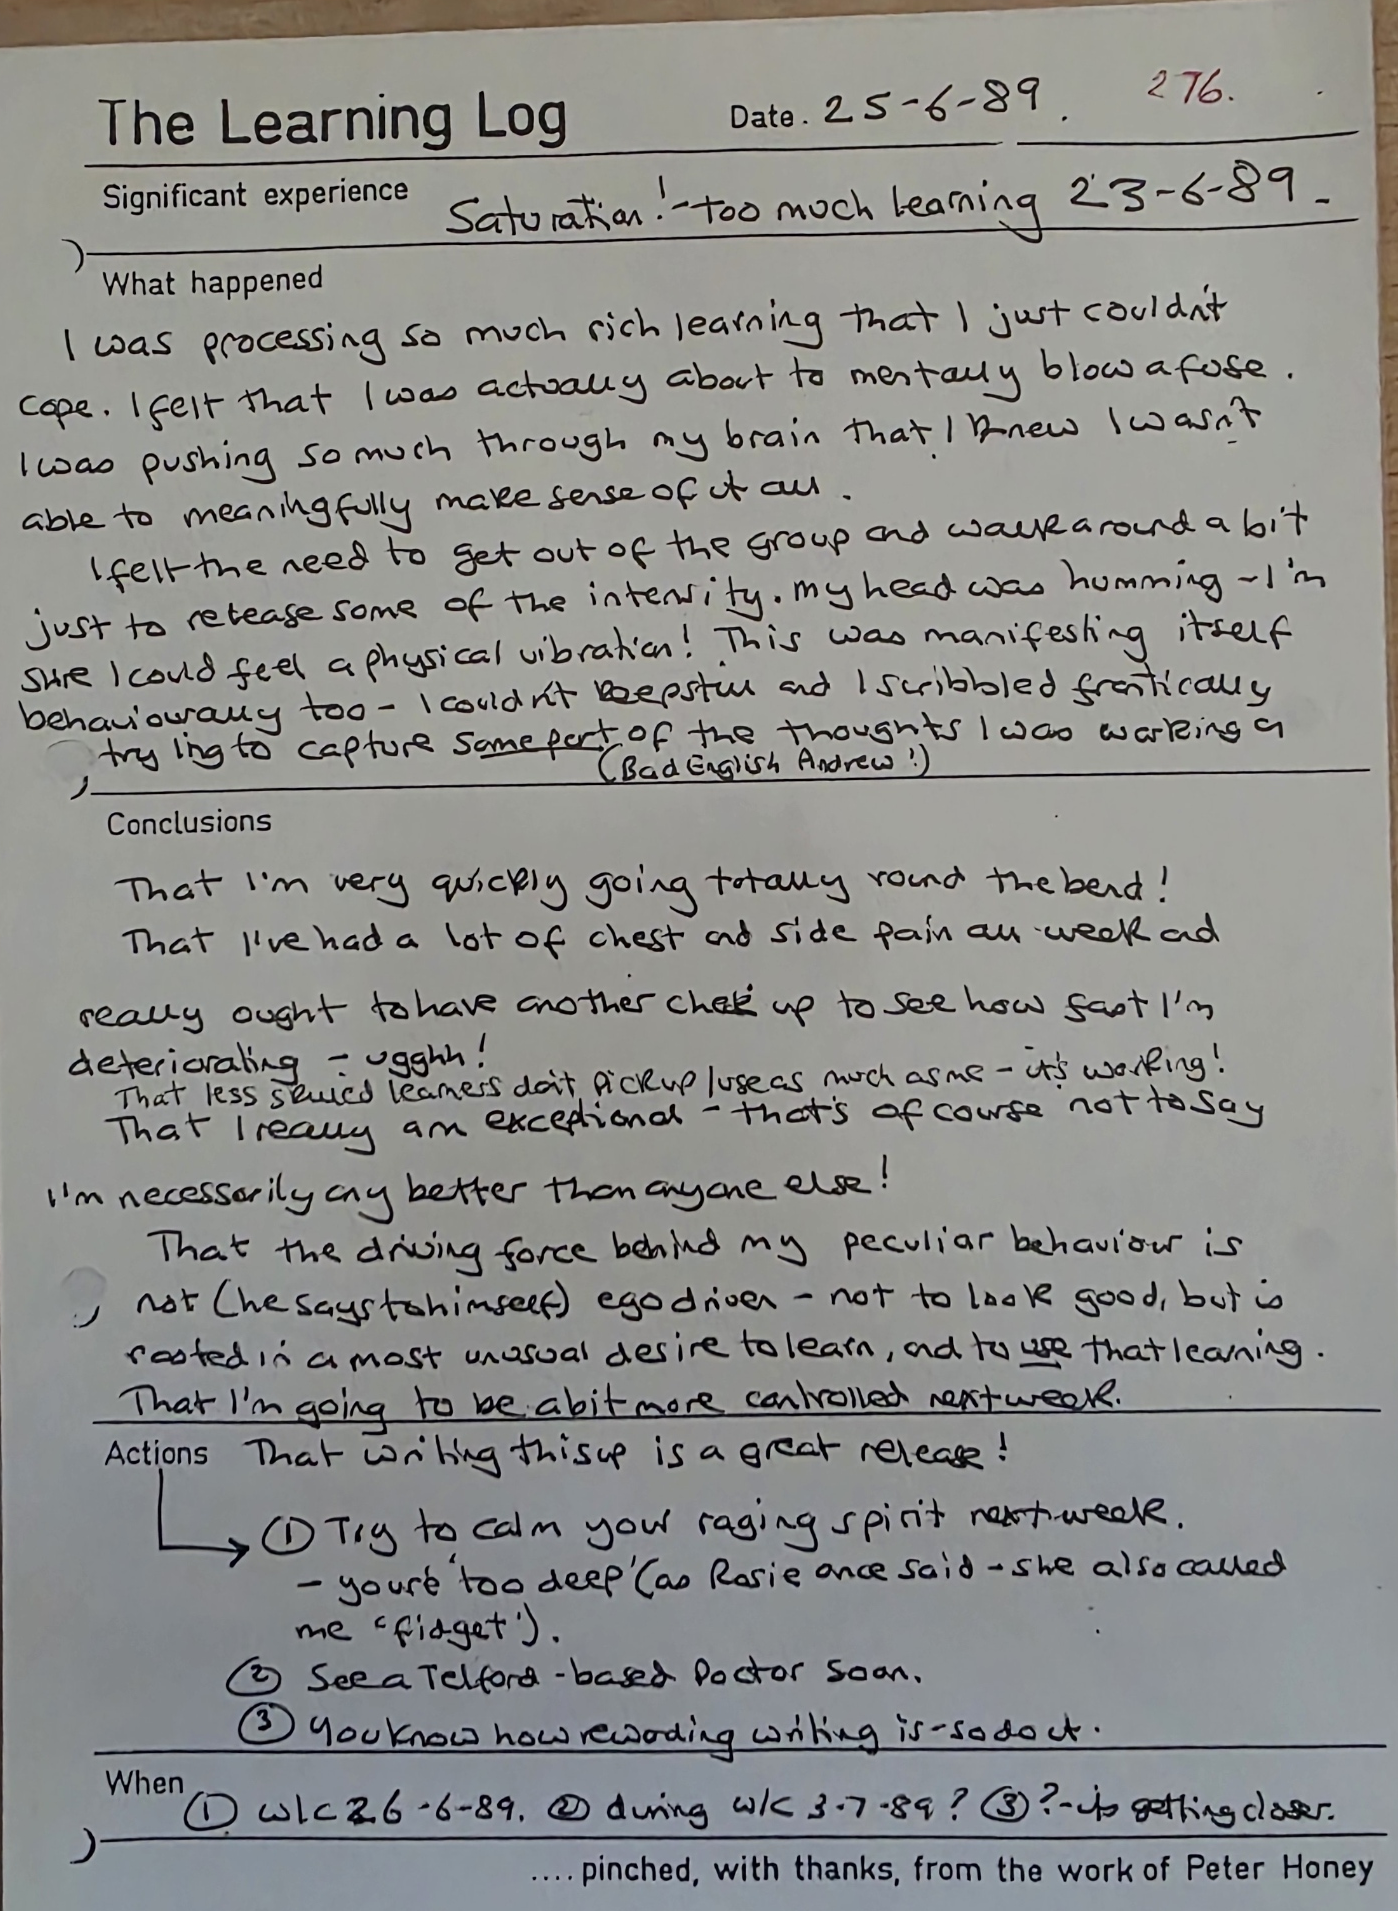 The Learning Log
Date. 25-6-89. 276.
Significant experience Saturation! - too much learning 23-6-89 -
What happened
I was processing so much rich learning that I just couldn't
cope. I felt that I was actually about to mentally blow a fuse.
I was pushing so much through my brain that I knew I wasn't
able to meaningfully make sense of it all.
I felt the need to get out of the group and walk around a bit
just to release some of the intensity. My head was humming - I'm
sure I could feel a physical vibration! This was manifesting itself
behaviourally too - I couldn't keep still and I scribbled frantically
trying to capture some part of the thoughts I was working on
(Bad English Andrew!)
Conclusions
That I'm very quickly going totally round the bend!
That I've had a lot of chest and side pain all week and
really ought to have another check up to see how fast I'm
deteriorating - ugghh!
That less skilled learners don't pick up / use as much as me - it's working!
That I really am exceptional - that's of course not to say
I'm necessarily any better than anyone else!
That the driving force behind my peculiar behaviour is
not (he says to himself) ego driven - not to look good, but is
rooted in a most unusual desire to learn, and to use that learning.
That I'm going to be a bit more controlled next week.
Actions That writing this up is a great release!
① Try to calm your raging spirit next week.
- you're 'too deep' (as Rosie once said - she also called
me 'fidget').
② See a Telford-based Doctor soon.
③ You know how rewarding writing is - so do it.
When ① w/c 26-6-89. ② during w/c 3-7-89? ③ ? - it's getting closer.
.... pinched, with thanks, from the work of Peter Honey